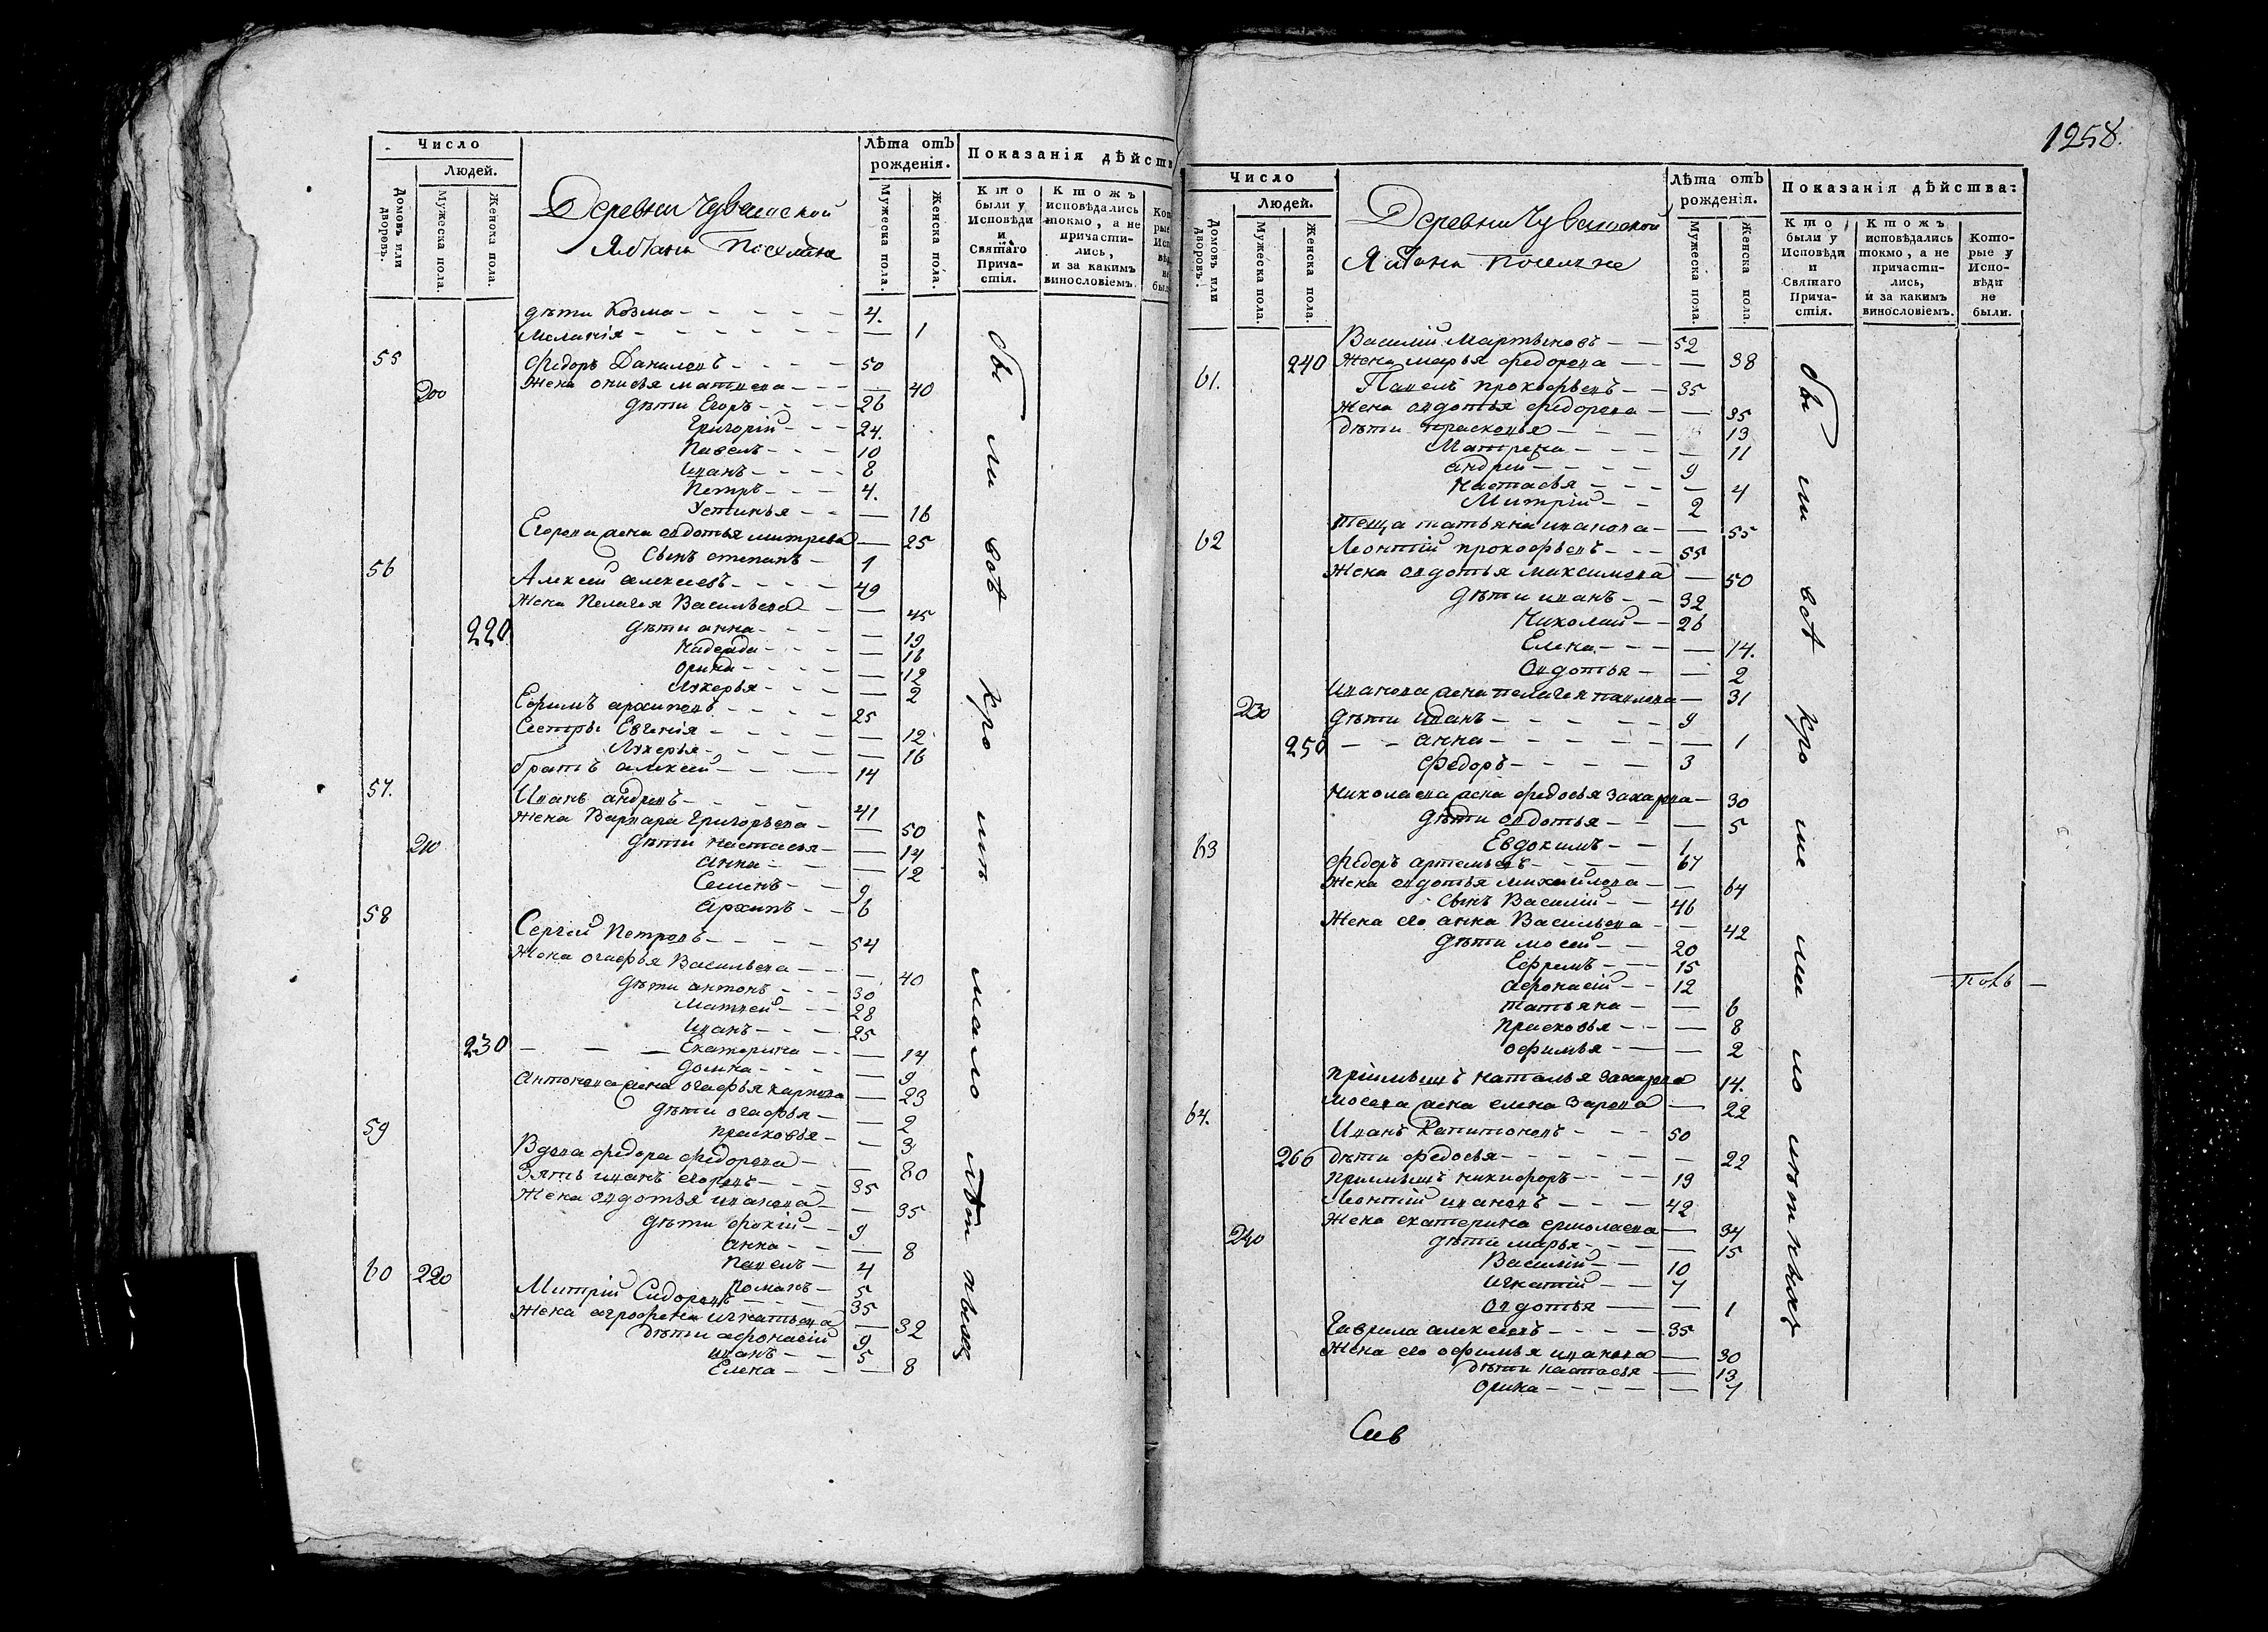 Число
Людей.
Домовъ или дворовъ.
Мужеска пола.
Женска пола.
Деревни Чувашской
Лѣта отъ рожденія.
Мужеска пола.
Женска пола.
Показанія дѣйств
Кто были у Исповѣди и Святаго Причастія.
Ктожъ исповѣдались токмо, а не причастились, и за какимъ винословіемъ.
дѣти Козма - - - - - 4.
Меланія - - - - - — 1
55 Федоръ Даниловъ - - - - 50
200 Жена онисья матвеева - - - — 40
дѣти Егоръ - - - - 26
Григорій - - - 24.
Павелъ - - - 10
Иванъ - - - - 8
Петръ - - - 4.
Устинья - - — 16
Егорова жена авдотья митрева — 25
Сынъ степанъ - 1
56 Алексей алексеевъ - - - - 49
Жена Пелагея Васильева - - — 45
220 дѣти анна - - - - — 19
Надежда - - - — 16
орина - - - - — 12
Лукерья - - - — 2
Ефимъ архиповъ - - - - 25
Сестры Евгенія - - - - - — 12
Лукерья - - - - — 16
братъ алексей - - - — 14
57. Иванъ андреевъ - - - - - 41
Жена Варвара Григорьева - — 50
210 дѣти настасья - — 14
Анна - - - — 12
Семенъ - - 9
Архипъ - - 6
58 Сергей Петровъ - - - - - 54
Жена огафья Васильева - - - — 40
дѣти антонъ - - - 30
Матвей - - - 28
Иванъ - - - 25
230 — — — Екатерина - - — 14
домна - - - - — 9
Антонова жена огафья карпова — 23
дѣти огафья - — 2
прасковья - — 3
59 Вдова федора федорова - — 80
Зять иванъ егоровъ - - - 35
Жена авдотья иванова - — 35
дѣти фокій - - 9
анна - - — 8
Павелъ - 4
Романъ - 5
60 220 Митрій Сидоровъ - - - 35
Жена аграфена игнатьева — 32
дѣти афонасій 9
иванъ - - 5
Елена - - — 8
1258.
Число
Людей.
Домовъ или дворовъ.
Мужеска пола.
Женска пола.
Деревни Чувашской
Лѣта отъ рожденія.
Мужеска пола.
Женска пола.
Показанія дѣйства:
Кто были у Исповѣди и Святаго Причастія.
Ктожъ исповѣдались токмо, а не причастились, и за какимъ винословіемъ.
Которые у Исповѣди не были.
Василій Мартыновъ - — 52
240 Жена марья федорова — - — 38
61. Павелъ прокофьевъ - - 35
Жена авдотья федорова - — 35
дѣти прасковья - - - 13
Матрена - - - — 11
андрей - - - - - 9
настасья - - - — 4
Митрій - - 2
теща татьяна иванова - — 55
62 Леонтій прокофьевъ - - - 55
Жена авдотья максимова — 50
дѣти иванъ - - 32
Николай - - 26
Елена - - - — 14.
Авдотья - — 2
Иванова жена пелагея павлова — 31
230 дѣти иванъ - - - - - - 9
250 — - анна - - - - - - — 1
федоръ - - - - - 3
Николаева жена федосья захарова — 30
дѣти авдотья - - — 5
Евдокимъ - - 1
63 Федоръ артемьевъ - - - - - 67
Жена авдотья михайлова - — 64
Сынъ Василій - - 46
Жена его анна Васильева - — 42
дѣти мосей - - 20
Ефремъ - - - 15
афонасій - - 12
татьяна - — 6
прасковья - - — 8
офимья - — — 2
пріимышъ наталья захарова 14.
мосеева жена елена — 22
64. Иванъ Капитоновъ - - - 50
266 дѣти федосья - - - - - — 22
пріимышъ никифоръ - - - - 19
Леонтій ивановъ - - - - 42
Жена екатерина ермолаева — 34
240 дѣти марья - - - - — 15
Василій - - 10
игнатій - - 7
авдотья — — 1
Гаврила алексеевъ - - - - 35
Жена его офимья иванова — 30
дѣти настасья — 13
орина - - - - - — 7